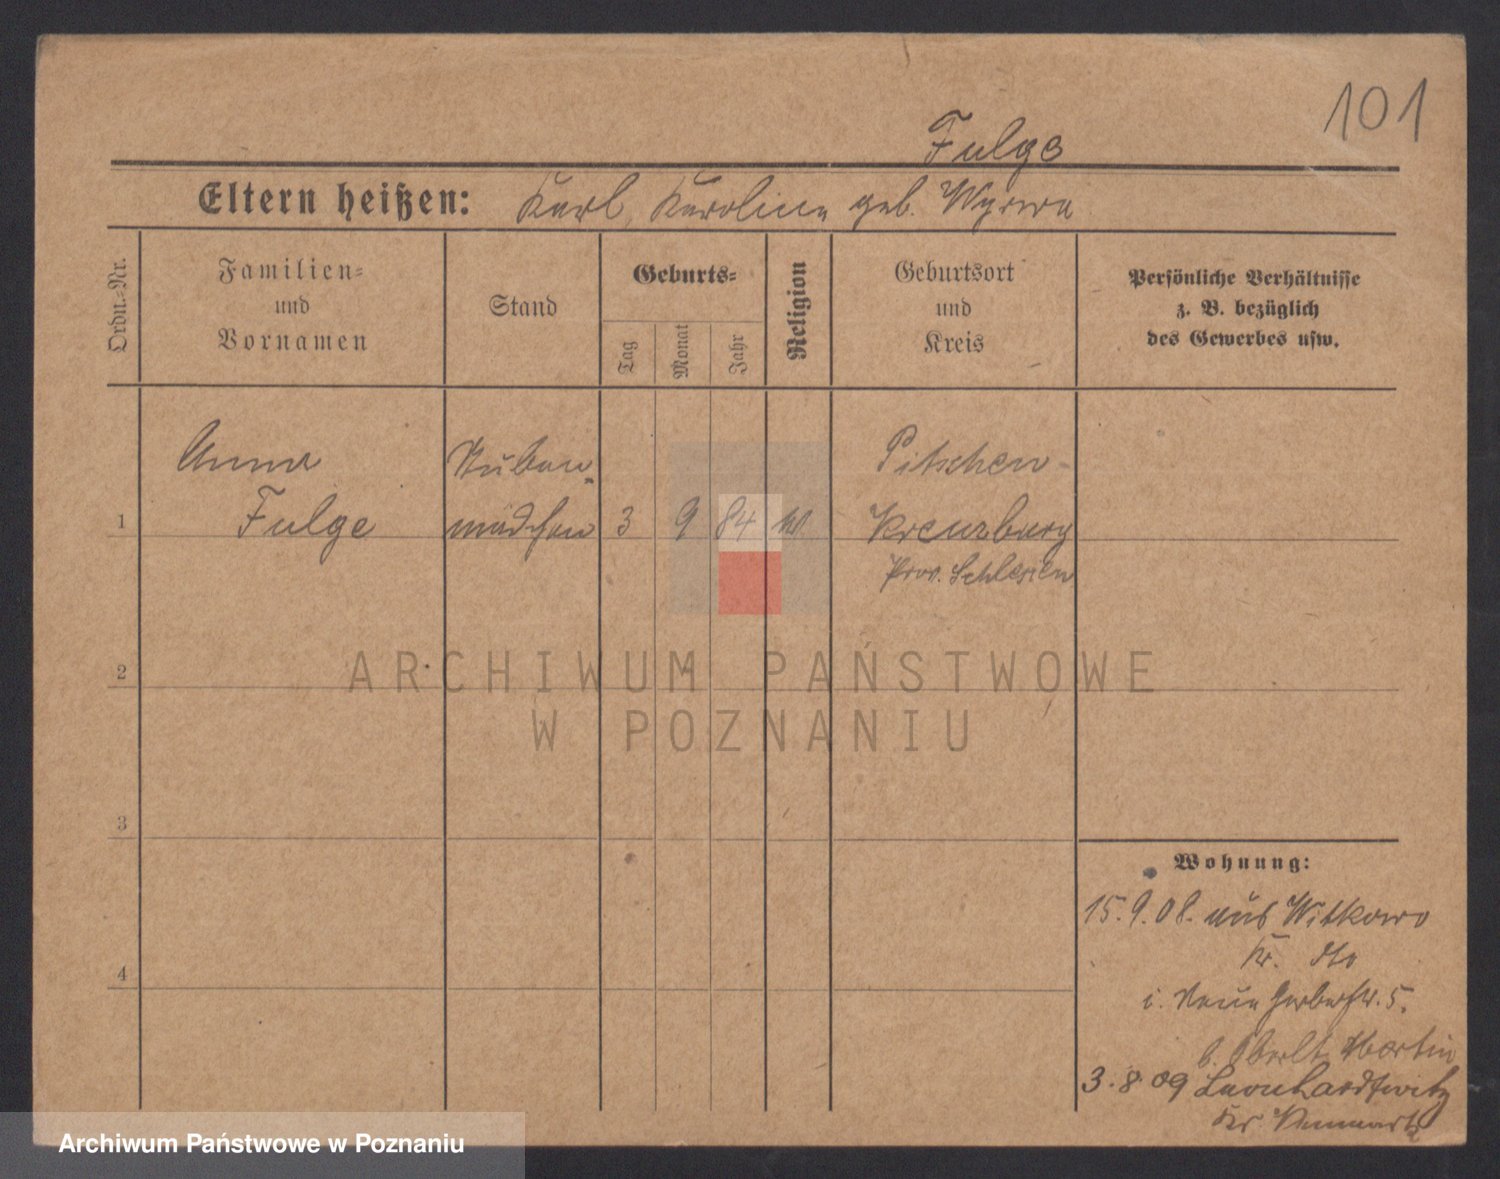 101
Fulge
Eltern heißen: Karl, Karoline geb. Wyrwa
Ordn.-Nr.
Familien-
und
Vornamen
Stand
Geburts-
Tag
Monat
Jahr
Religion
Geburtsort
und
Kreis
Persönliche Verhältnisse
z. B. bezüglich
des Gewerbes usw.
Anna Stuben- Pitschen
1 Fulge mädchen 3 9 84 Kreuzburg
Prov. Schlesien
ARCHIWUM PAŃSTWOWE
W POZNANIU
2
3
4
Wohnung:
15.9.08. aus Witkowo
Kr. dto
i. Neue Gerberstr. 5.
b. Oberlt. Martin
3.8.09 Leonhardtwitz
Kr. Neumarkt
Archiwum Państwowe w Poznaniu